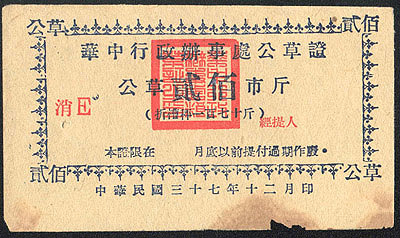 公草 貳佰
華中行政辦事處公草證
公草貳佰市斤
消E
經提人
本證限在 月底以前提付過期作廢
貳佰 公草
中華民國三十七年十二月印